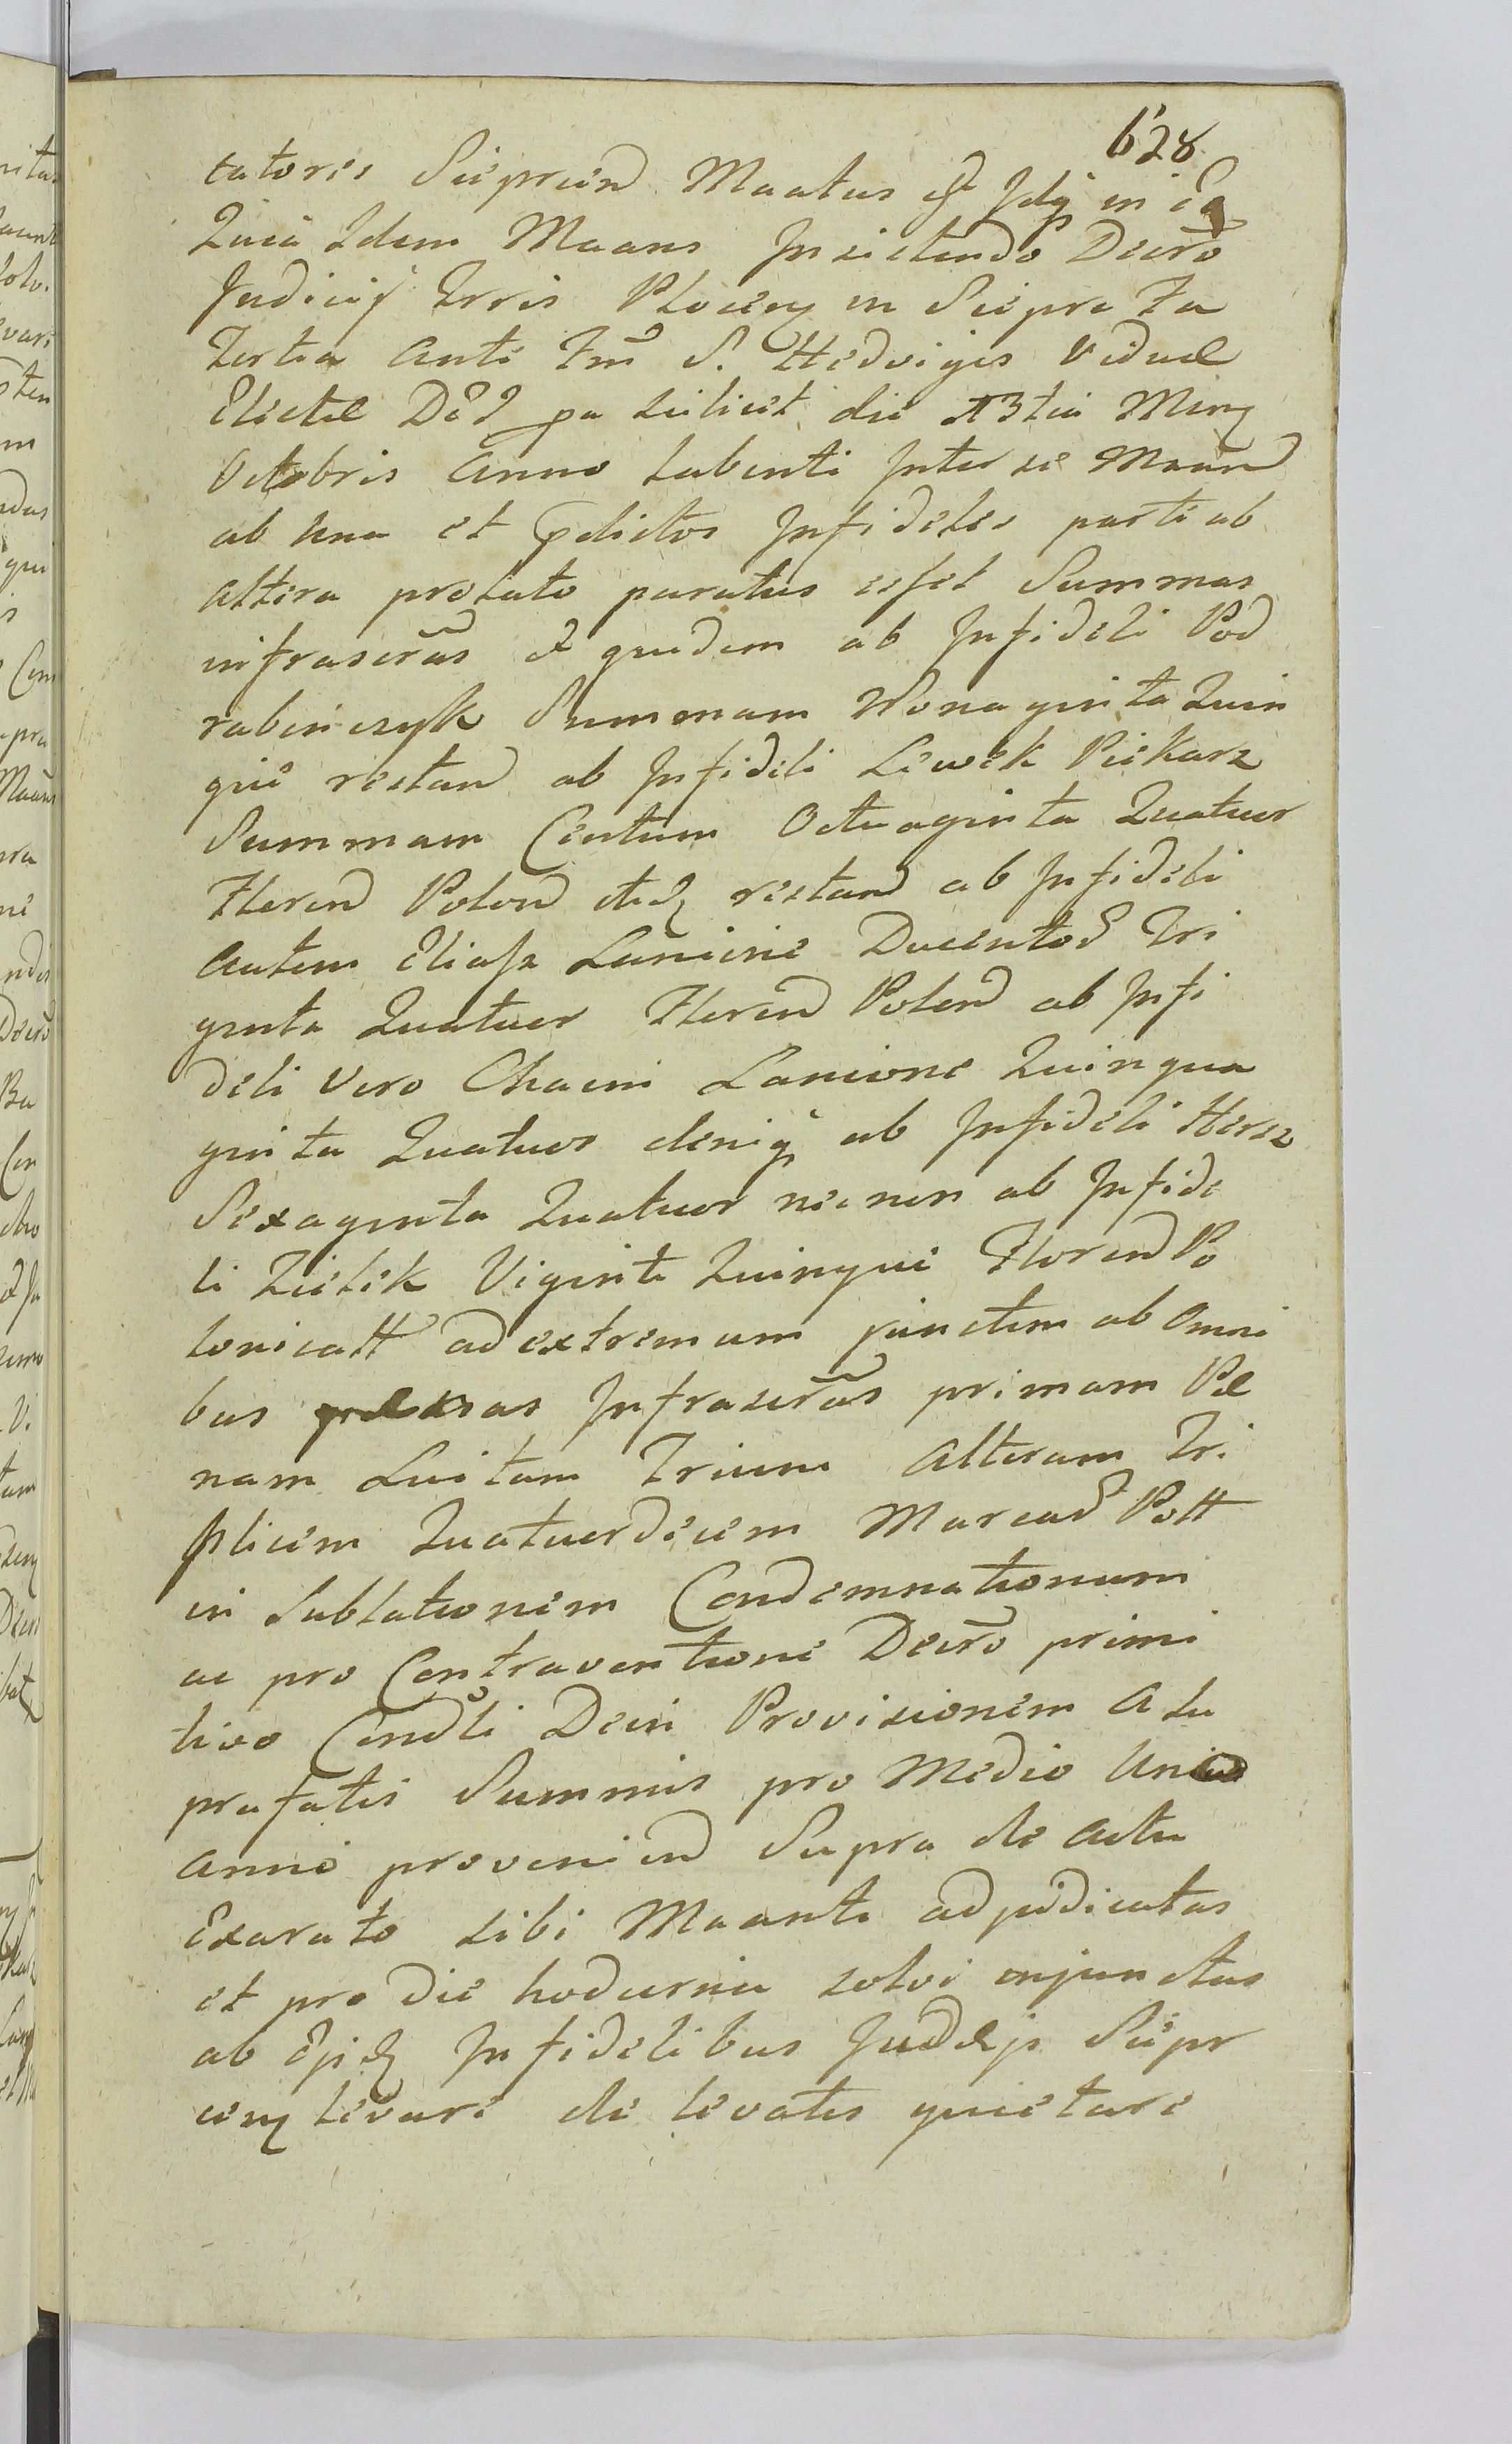 628
tatores Sieprcen Maatus est Idq in ea
Quia Idem Maans Insistendo Decro
Judicij Trris Plocen in Sieprc Fa
Tertia Ante Fm S. Hedvigis Viduæ
Electæ Dei pa scilicet die 13tia Mens
Octobris Anno labenti Inter se Maan
ab una et pdictos Infideles parte ab
altera prolato paratus esset Summas
infrascras et quidem ab Infideli Pod
rabinczyk Summam Nonaginta Quin
que restan ab Infideli Lewek Piekarz
Summam Centum Octuaginta Quatuor
Floren Polon itidem restan ab Infideli
autem Eliasz Lanione Ducentos Tri
ginta Quatuor Floren Polon ab Infi
deli vero Chaim Lanione Quinqua
ginta Quatuor deniq ab Infideli Hersz
Sexaginta Quatuor necnon ab Infide
li Zielek Viginti Quinque Floren Po
lonicall ad extremum junctim ab Omni
bus Infrascras primam Pæ
nam Luitam Trium Alteram Tri
plicem Quatuordecim Marcas Poll
in Sublationem Condemnationum
ac pro Contraventione Decro primi
tivo Condli Dein Provisionem A Su
prafatis Summis pro Medio Unius
Anni provenien Supra de Actu
Exarato sibi Maanti adjudicatas
et pro die hodierna solvi injunctas
ab Infidelibus Judæjs Siepr
cen levare de levatis quietare